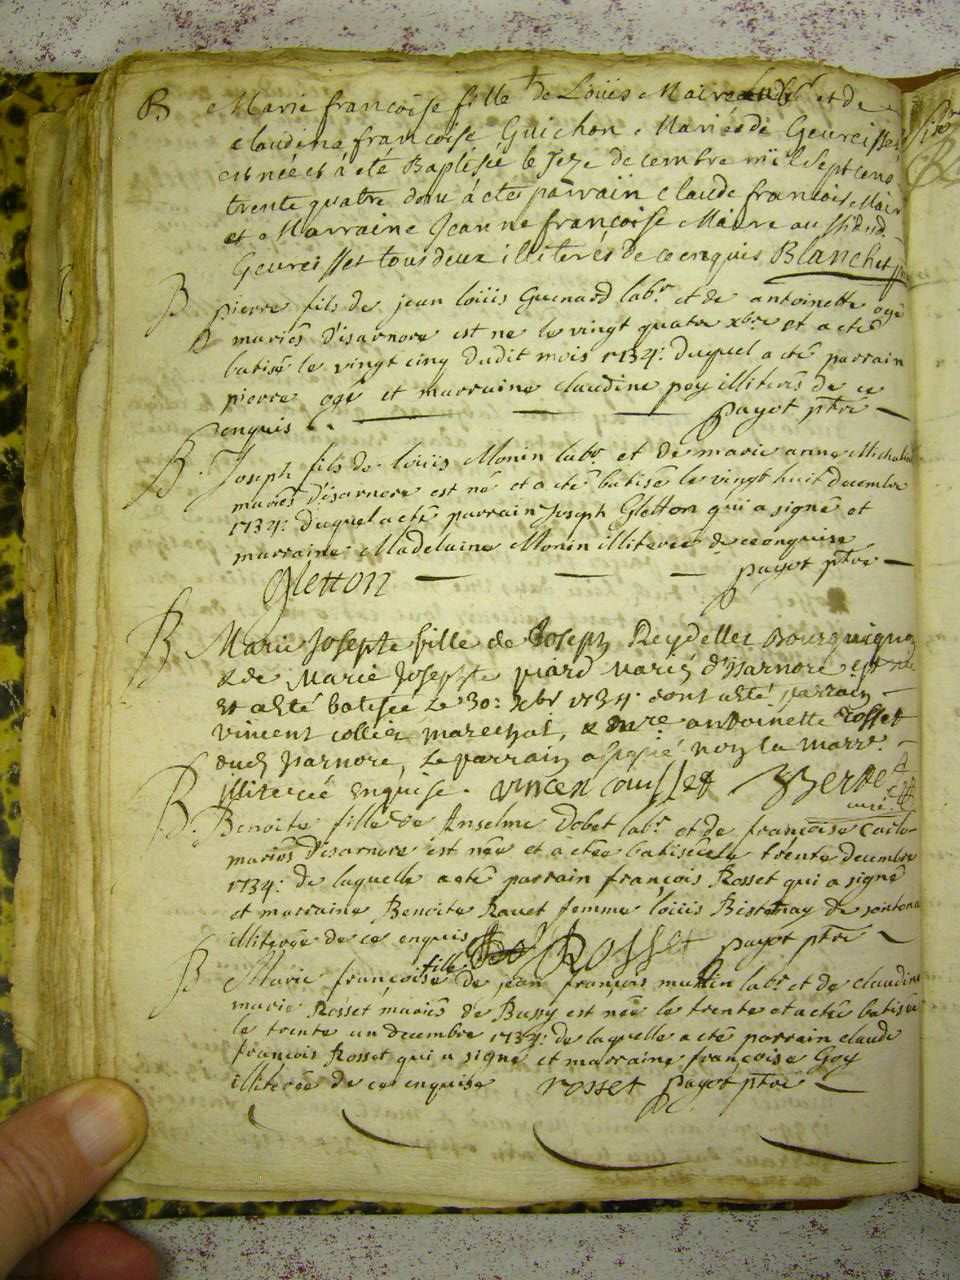 B Marie francoise fille de Loüis Maire labr et de
claudine francoise Guichon Mariés de Geureisset
est née et á été Baptisée le seze decembre mil sept cens
trente quatre dont á eté parrain claude francois Maire
et Marraine Jeanne francoise Maire aussi dud.
Geureisset tous deux illiterés de ce enquis Blanchet
B pierre fils de jean loüis Guenard labr. et de antoinette ogé
mariés d'isarnore est ne le vingt quatre xbre et a eté
batisé le vingt cinq dudit mois 1734: duquel a eté parrain
pierre ogé et marraine claudine poy illiterés de ce
enquis. payot ptre
B. Joseph fils de loüis Monin labr. et de marie anne
mariés d'isarnore est né et a eté batisé le vingt huit decembre
1734: duquel a eté parrain Joseph Gletton qui a signé et
marraine Madelaine Monin illiterée de ce enquise
Gletton payot ptre
B Marie Josepte fille de Joseph Reydellet Bourguignon
& de Marie Josepte piard Mariés d'Isarnore est née
et a esté batisée le 30: xbr 1734. dont a esté parrain
vincent collier marechal, & mre antoinette Rosset
dud Isarnore, le parrain a signé non la marre.
illiterée enquise. vincen
curé
B. Benoite fille de Anselme Dobet labr. et de francoise
mariés d'isarnore est née et a eté batisée le trente decembre
1734: de laquelle a eté parrain françois Rosset qui a signé
et marraine Benoite Ravet femme loüis de sontona
illiterée de ce enquis Rosset payot ptre
B Marie francoise fille de jean françois labr. et de claudine
marie Rosset mariés de Bussy est née le trente et a eté batisée
le trente un decembre 1734: de laquelle a eté parrain claude
francois Rosset qui a signé et marraine françoise Goy
illiterée de ce enquise rosset payot ptre